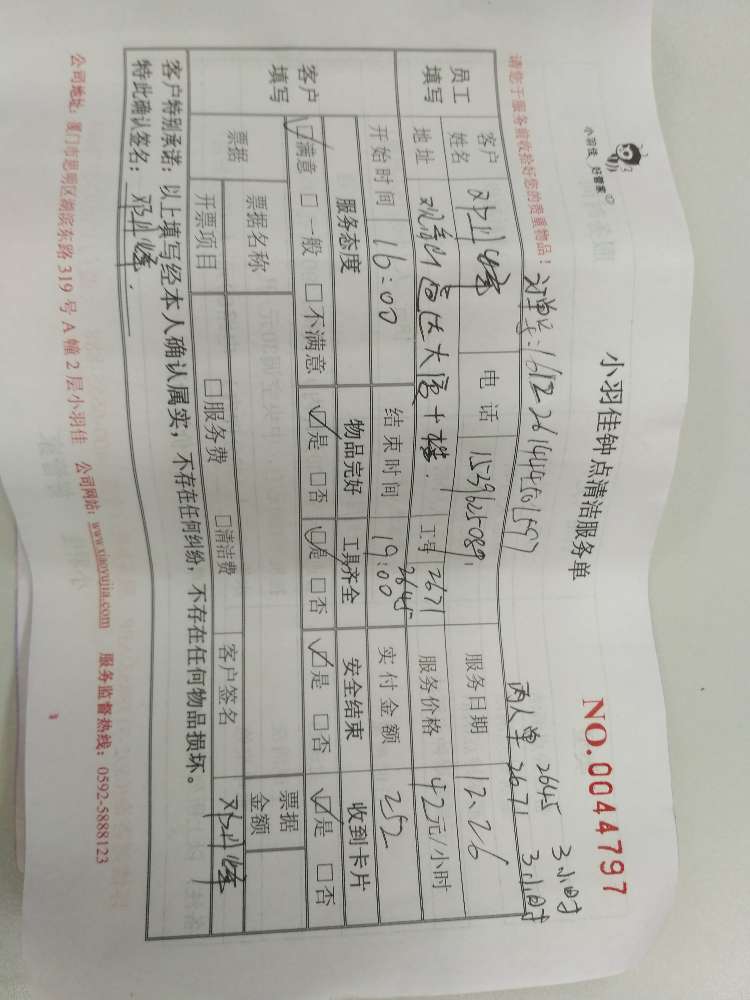 小羽佳 好管家
小羽佳钟点清洁服务单
NO.0044797
请您于服务前收拾好您的贵重物品！
两人单 2645 3小时
2671 3小时
员工填写
客户姓名
电话
服务日期 12.26
地址
工号 2671
2645
服务价格 42元/小时
开始时间 16:00
结束时间 19:00
实付金额 252
客户填写
服务态度 物品完好 工具齐全 安全结束 收到卡片
☑满意 □一般 □不满意 ☑是 □否 ☑是 □否 ☑是 □否 ☑是 □否
票据
票据名称
票据金额
开票项目 □服务费 □清洁费 客户签名
客户特别承诺：以上填写经本人确认属实，不存在任何纠纷，不存在任何物品损坏。
特此确认签名：
公司地址：厦门市思明区湖滨东路 319 号 A 幢 2 层小羽佳 公司网站：www.xiaoyujia.com 服务监督热线：0592-5888123